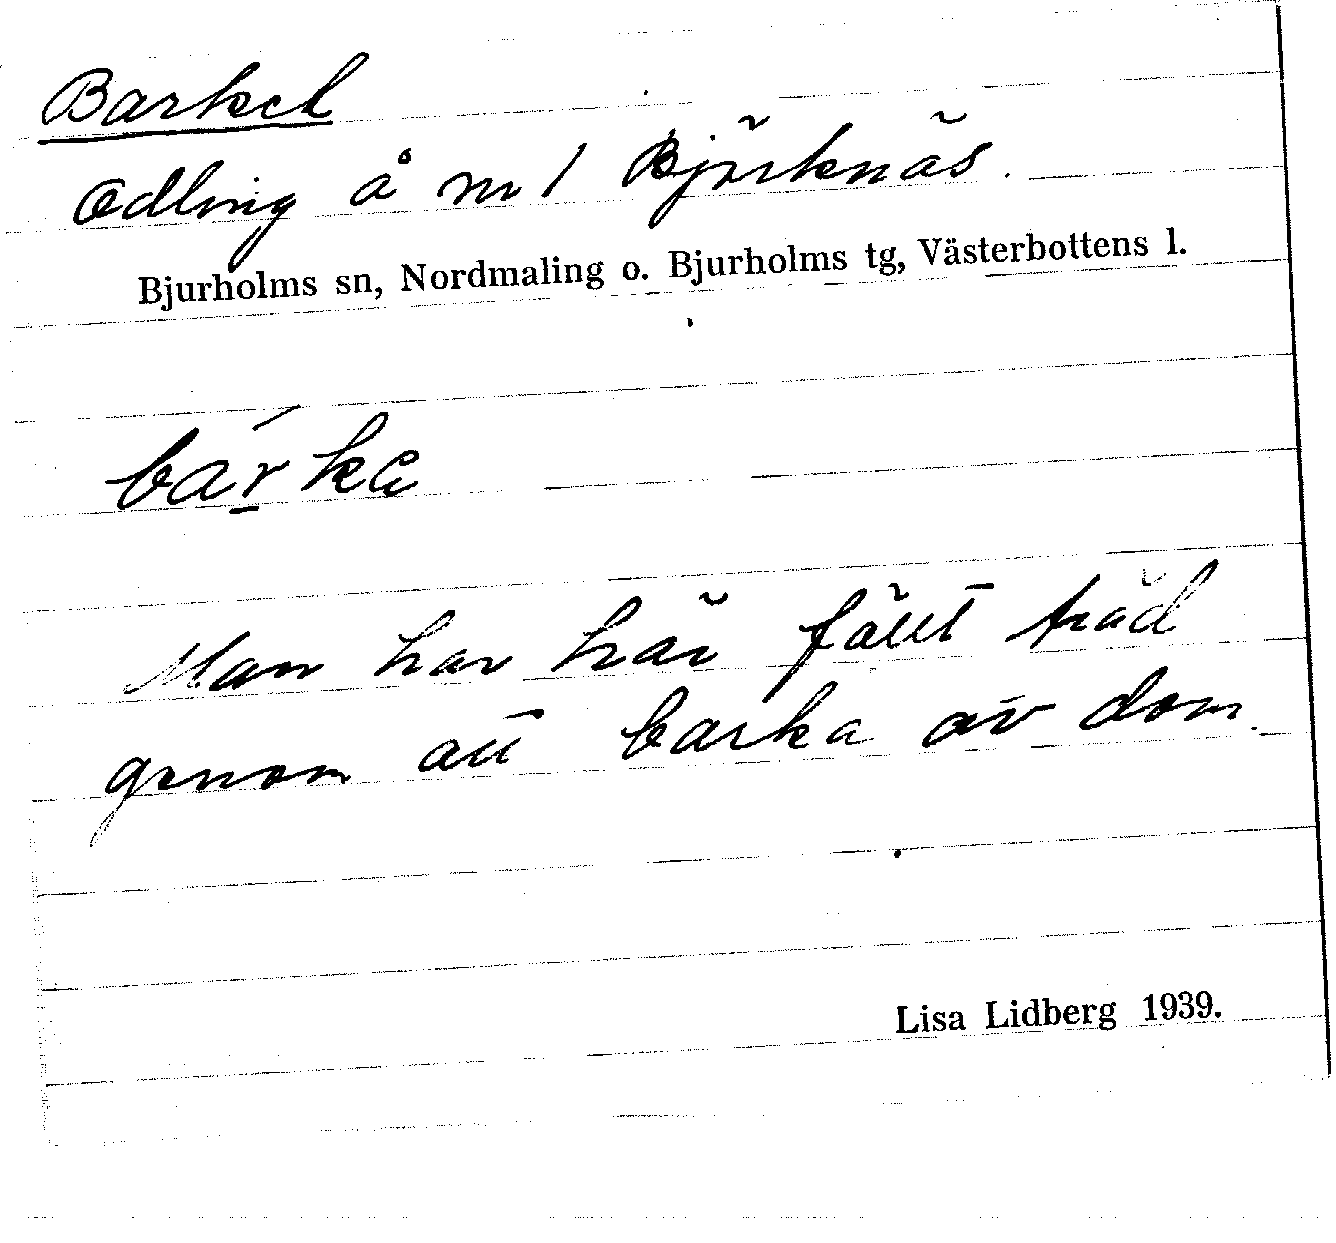 Barkel
Odling å nr 1 Björknäs.
Bjurholms sn, Nordmaling o. Bjurholms tg, Västerbottens l.
Man har här fällt träd
genom att barka av dom.
Lisa Lidberg 1939.